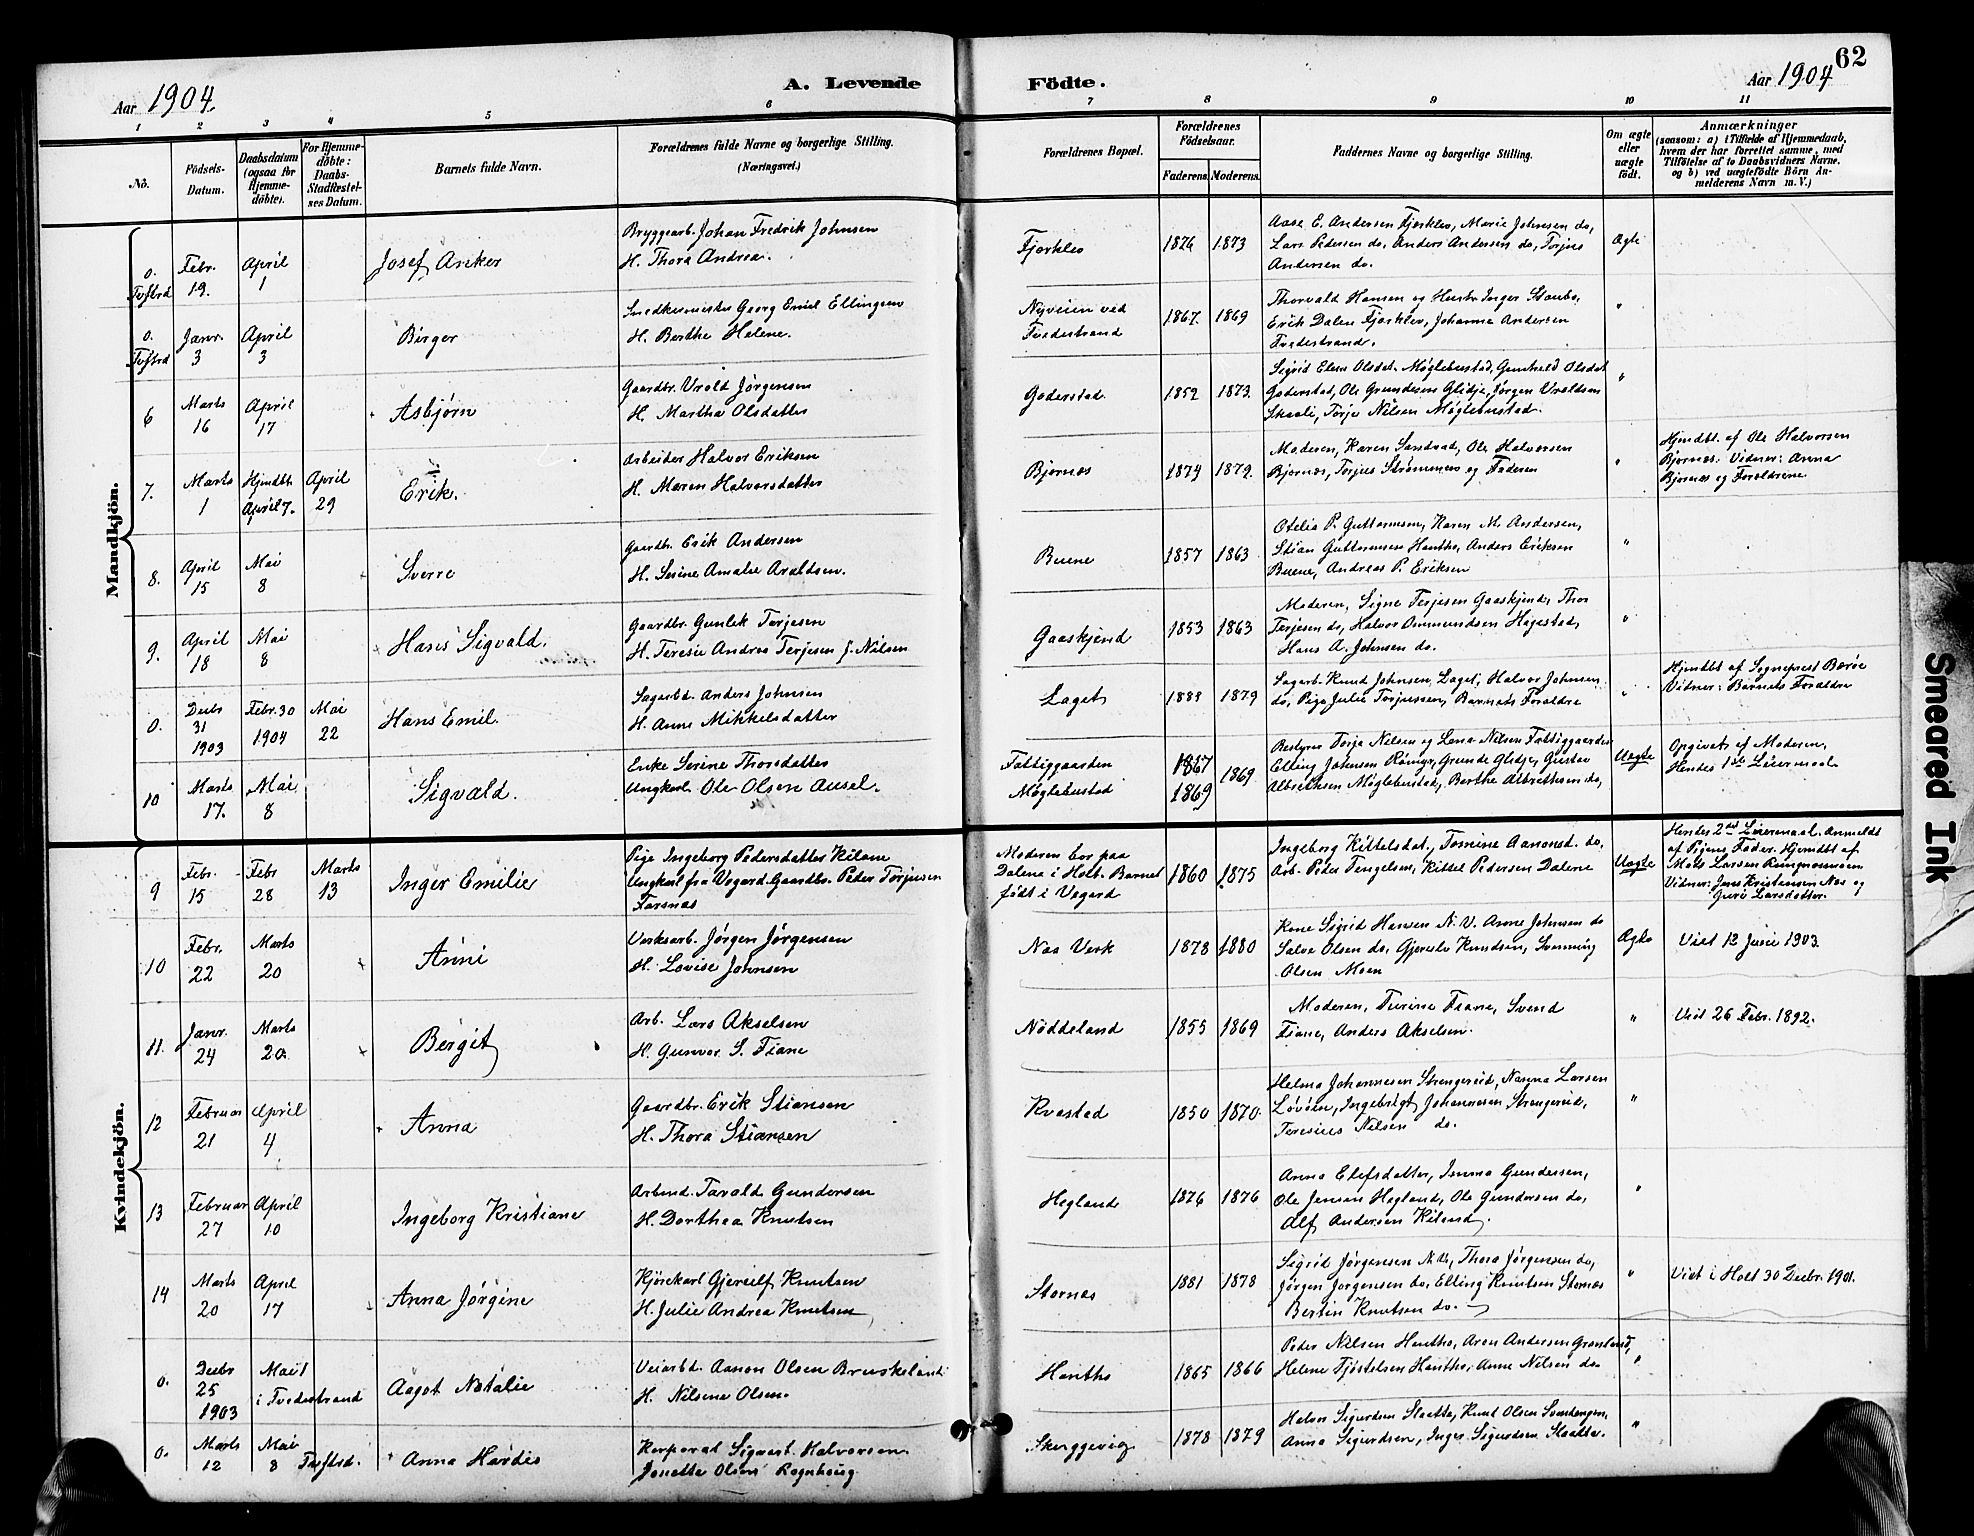 62
Aar 1904.
A. Levende
Födte.
Aar 1904
1 2 3 4 5 6 7 8 9 10 11
No.
Födsels-
Datum.
Daabsdatum
(ogsaa for
Hjemme-
döbte).
For Hjemme-
döbte:
Daabs-
Stadfæstel-
ses Datum.
Barnets fulde Navn.
Forældrenes fulde Navne og borgerlige Stilling.
(Næringsvei.)
Forældrenes Bopæl.
Forældrenes
Födselsaar.
Faderens. Moderens.
Faddernes Navne og borgerlige Stilling.
Om ægte
eller
uægte
födt.
Anmærkninger
(saasom: a) i Tilfælde af Hjemmedaab,
hvem der har forrettet samme, med
Tilföielse af to Daabsvidners Navne,
og b) ved uægtefödte Börn An-
melderens Navn m. V.)
Mandkjön.
0.
Febr. 19.
April 1
Josef Anker
Bryggearb. Johan Fredrik Johnsen
H. Thora Andrea.
Fjærklev
1876 1873
Aase E. Andersen Fjærklev, Marie Johnsen do,
Lars Pedersen do, Anders Andersen do, Terjus
Andersen do.
Ægte
0.
Janr. 3
April 3
Birger
Snedkermester Georg Emil Ellingsen
H. Berthe Helene.
Nyveien ved
Tvedestrand
1867. 1869
Thorvald Hansen og Hustr. Inger Staubo,
Erik Dalen Fjærklev, Johanna Andersen
Tvedestrand.
"
6
Marts 16
April 17
Asbjørn
Gaardbr. Vrold Jørgensen
H. Martha Olsdatter
Goderstad
1852 1873.
Sigrid Elen Olsdat. Møglebustad, Gunhild Olsdat
Goderstad, Ole Grundesen Glidje, Jørgen Vroldsen
Skaali, Terje Nilsen Møglebustad.
"
7.
Marts 1
Hjemdbt. April 7.
April 29
Erik.
Arbeider Halvor Eriksen
H. Maren Halvorsdatter
Bjørnes
1874 1879.
Moderen, Karen Sandnad, Ole Halvorsen
Bjørnes, Torjus Strømmen og Faderen
"
Hjemdbt. af Ole Halvorsen
Bjørnes: Vidner: Anna
Bjørnes og Forældrene
8.
April 15
Mai 8
Sverre
Gaardbr. Erik Andersen
H. Serine Amalie Avaldsen.
Buene
1857 1863
Otelia P. Guttormsen, Karen M. Andersen,
Stian Guttormsen Hantho, Anders Eriksen
Buene, Andreas P. Eriksen
"
9.
April 18
Mai 8
Hans Sigvald.
Gaardbr. Gunlek Terjesen
H. Teresie Andrea Terjesen f. Nilsen
Gaaskjend
1853 1863
Moderen, Signe Terjesen Gaaskjend, Thor
Terjesen do, Halvor Ommundsen Høgestad,
Hans A. Johnsen do.
"
0.
Decbr 31 1903
Febr. 30 1904
Mai 22
Hans Emil.
Sagarbd. Anders Johnsen
H. Anne Mikkelsdatter
Laget
1888 1879
Sagarb. Knud Johnsen, Laget, Halvor Johnsen
do, Pige Julie Torjussen, Barnets Forældre
"
Hjemdbt af Sogneprest Barøe
Vidner: Barnets Forældre
10
Marts 17.
Mai 8
Sigvald.
Enke Serine Thorsdatter
Ungkarl Ole Olsen Ausel.
Fattiggaarden
Møglebustad
1867
1869 1869
Bestyrer Terje Nilsen og Lena Nilsen Fattiggaarden
Elling Johnsen Ramyr, Grunde Glidje, Gustav
Albrethsen Møglebustad, Berthe Albrethsen do,
Uægte
Opgivet af Moderen,
Hendes 1ste Leiermaal.
Kvindekjön.
9
Febr. 15
Febr 28
Marts 13
Inger Emilie
Pige Ingeborg Pedersdatter Kilane
Ungkarl fra Vegard. Gaardbr. Peder Terjusen
Farsnes
Moderen bor paa
Dalene i Holt. Barnet
født i Vegard
1860 1875
Ingeborg Kittelsdat., Tomine Aanonsd. do,
Arb. Peder Tengelsen, Kittel Pedersen Dalene
Uægte
Hendes 2det Leiermaal. Anmeldt
af Pigens Fader. Hjemdbt af
Mats Larsen
Vidner: Jens Kristensen Næs og
Gurò Larsdatter.
10
Febr. 22
Marts 20
Anni
Værksarb. Jørgen Jørgensen
H. Lovise Johnsen
Næs Værk
1878 1880
Kone Sigrid Hansen N. V. Anne Johnsen do
Salve Olsen do, Gjerulv Knudsen, Svenning
Olsen Moen
Ægte
Viet 12 Juni 1903.
11.
Janr. 24
Marts 20.
Bergit
Arb. Lars Akselsen
H. Gunvor S. Fiane
Nøddeland
1855 1869
Moderen, Turine Fiane, Svend
Fiane, Anders Akselsen.
"
Viet 26 Febr. 1892.
12
Februar 21
April 4
Anna
Gaardbr. Erik Stiansen
H. Thora Stiansen
Kvastad
1850 1870.
Helma Johannesen Strengereid, Nanna Larsen
Løvåen, Ingebrigt Johannesen Strengereid,
Teresius Nilsen do.
"
13
Februar 27
April 10
Ingeborg Kristiane
Arbeid. Tarald Gundersen
H. Dorthea Knutsen
Hegland
1876 1876
Anna Elefsdatter, Imma Gundersen,
Ole Jensen Hegland, Ole Gundersen do,
Alf Andersen Kiland.
"
14
Marts 20
April 17
Anna Jørgine
Kjørekarl Gjerulf Knutsen
H. Julie Andrea Knutsen
Stornæs
1881 1878
Sigrid Jørgensen N.V., Thora Jørgensen do,
Jørgen Jørgensen do, Elling Knutsen Stornæs
Bertin Knutsen do.
"
Viet i Holt 30 Decbr. 1901.
0.
Decbr 25 1903
Mai 1 i Tvedestrand
Aagot Natalie
Veiarbd. Aanon Olsen Bruskeland
H. Nilsine Olsen.
Hantho
1865 1866
Peder Nilsen Hantho, Aron Andersen Grønland,
Helene Fjøstelsen Hantho, Anne Nilsen do
"
0.
Marts 12
Mai 8
Anna Hardis
Korporal Sigvart Halvorsen
Jonette Olsen Rognhaug
Skarggevig
1878 1879
Halvor Sigurdsen Slaatta, Knut Olsen Svenkengen,
Anna Sigurdsen, Inger Sigurdsen Slaatta.
"
Smeared Ink